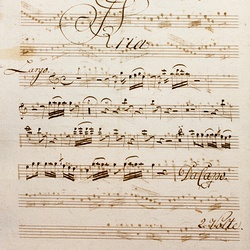 Aria
Largo
Da Capo.
2 Volte